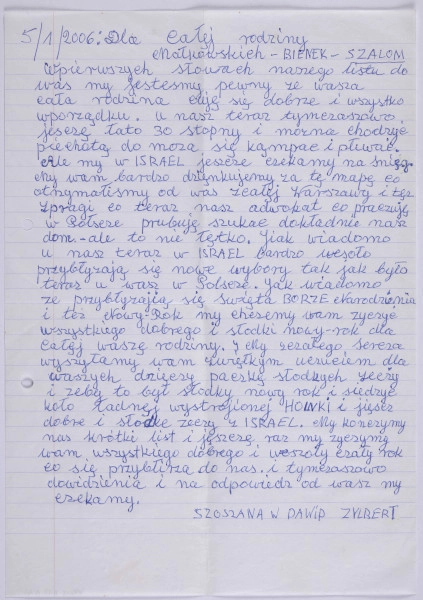 5/1/2006: Dla całej rodziny
Małkowskich - BIENEK - SZALOM
Wpierwszych słowach naszego listu do
was my jestesmy pewny ze wasza
cała rodzina czuje się dobrze i wszystko
wporządku. u nasz teraz tymczasowo
jeszcze lato 30 stopny i można chodzyć
piechotą do moza się kąmpac i pływac.
Ale my w ISRAEL jeszcze czekamy na śnieg
my wam bardzo dzynkujemy za tę mapę co
otrzymaliśmy od was zcałej Warszawy i też
zpragi co teraz nasz adwokat co praczują
w Polsce prubują szukac dokładnie nasz
dom - ale to nie łętko. Jiak wiadomo
u nasz teraz w ISRAEL bardzo wesoło
przyblyzają się nowe wybory tak jak było
teraz u wasz w Polsce. Jak wiadomo
ze przyblyzają się Swięta BORZE Narodzenia
i tez Nowy-Rok my chczemy wam zyczyc
wszystkiego dobrego i słodki nowy-rok dla
całej wasze rodziny. I My zcałego serca
wyszyłamy wam
waszych dzieczy paczkę słodzych zeczy
i zeby to był słodky nowy rok i siedzyc
koło ładnej wystrojonej HOINKI i jiesc
dobre i słodke zeczy z ISRAEL. My konczymy
nas krótki list i jeszcze raz my zyczymy
wam wszystkiego dobrego i wesoły czały rok
co się przyblirza do nas. i tymczasowo
dowidzenia i na odpowiedz od wasz my
czekamy.
SZOSZANA W DAWID ZYLBERT